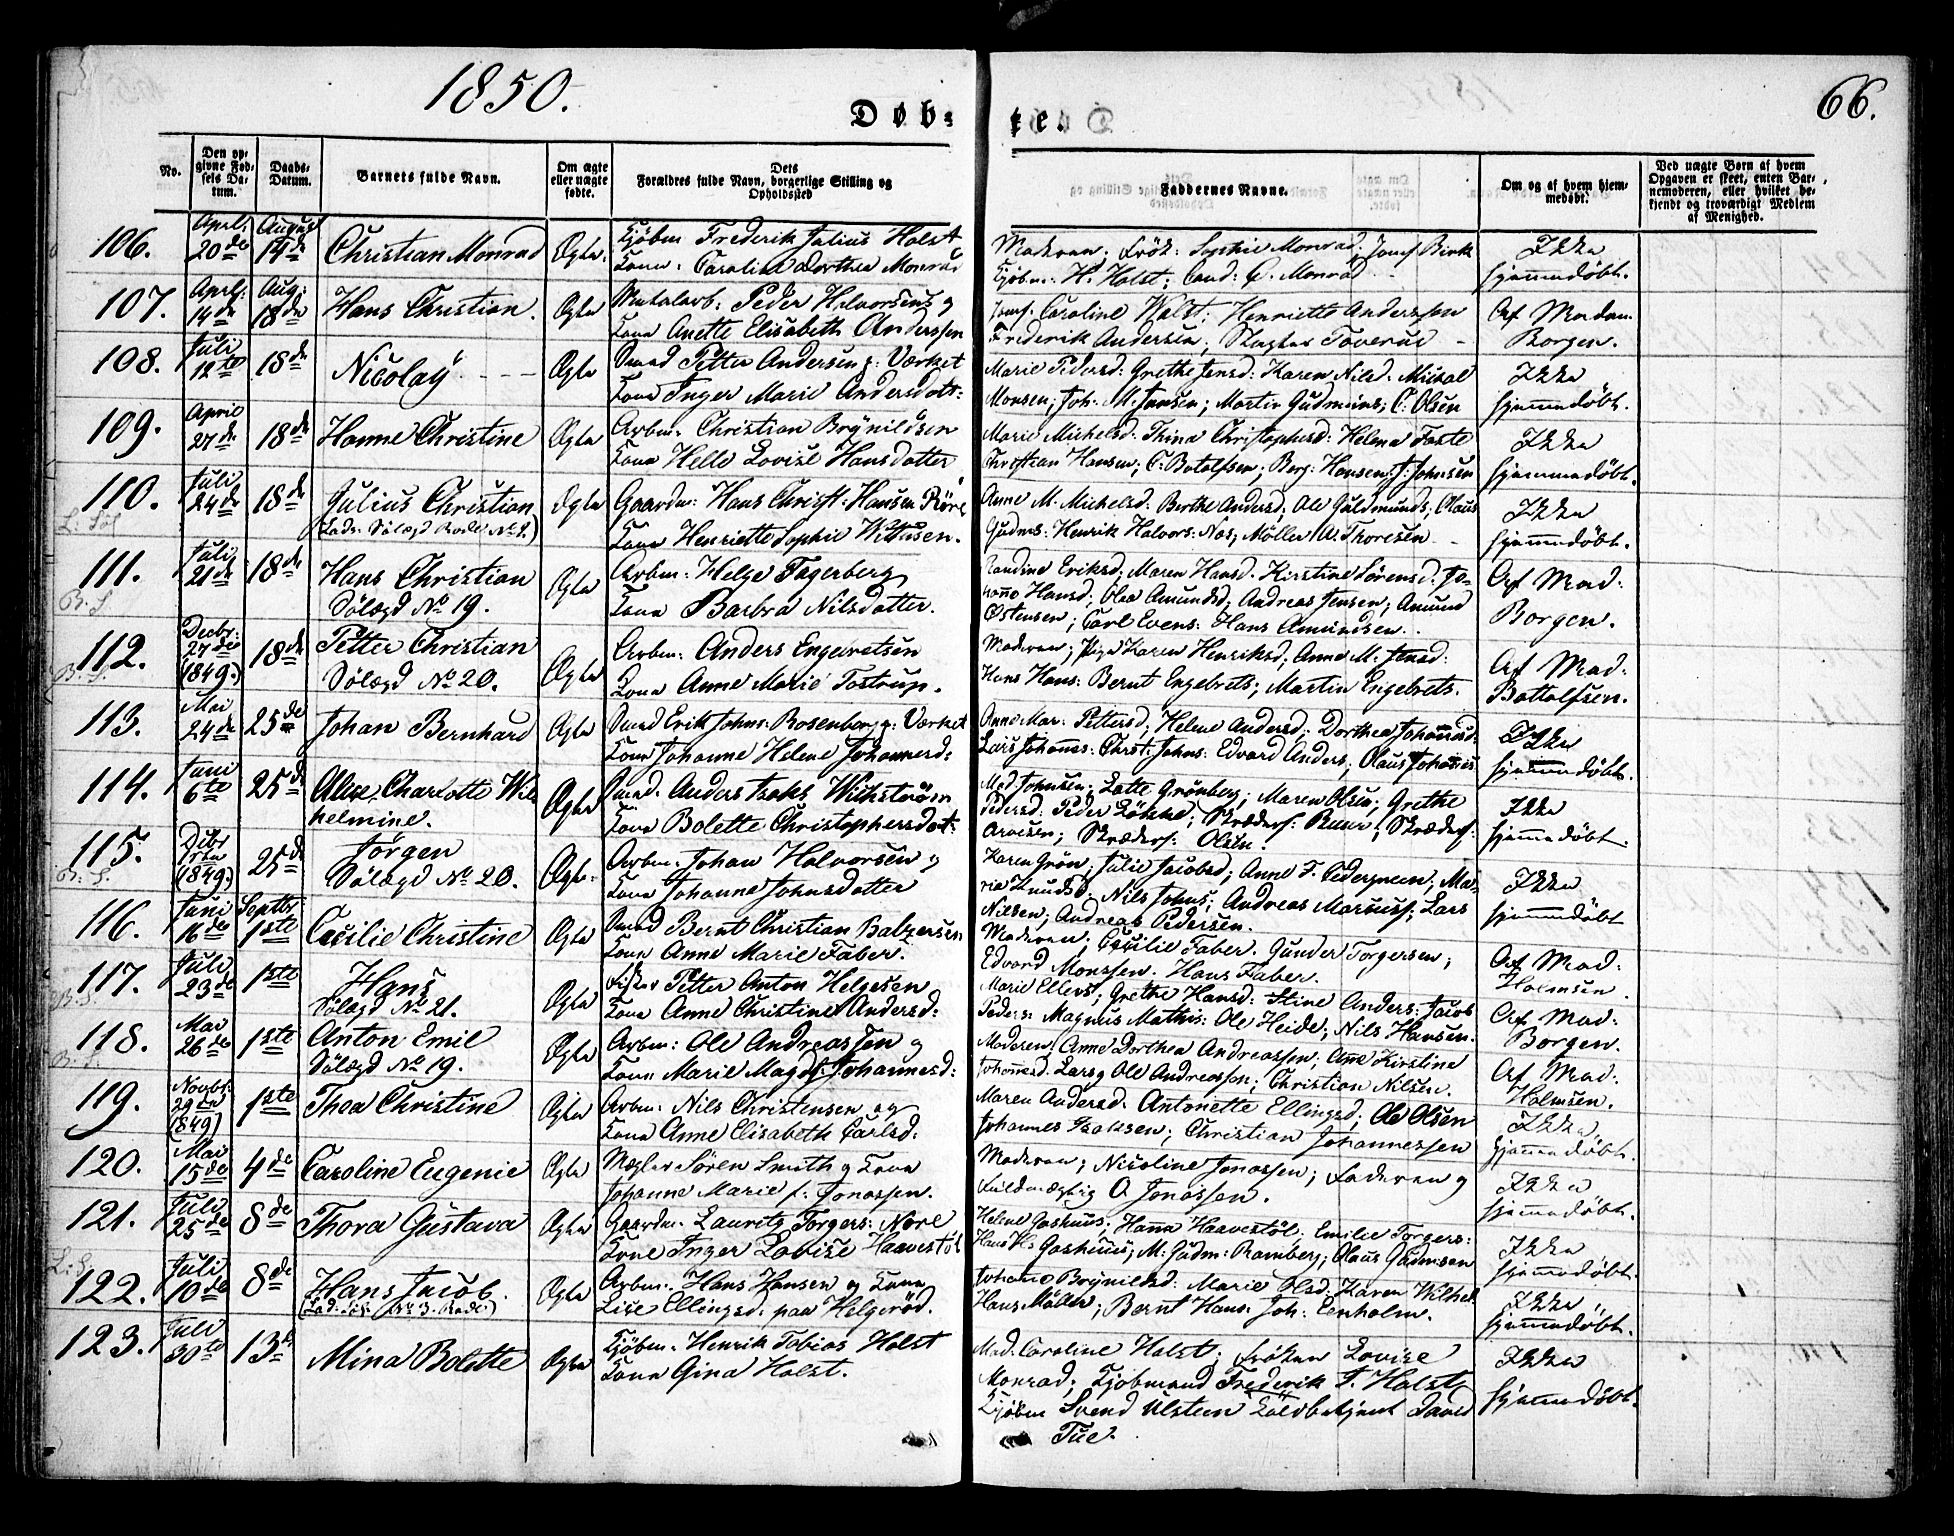 1850.
66.
Døb-
te.
No.
Den opgivne Fødsels Datum.
Daabs-Datum.
Barnets fulde Navn.
Om ægte eller uægte fødte.
Dets Forældres fulde Navn, borgerlige Stilling og Opholdssted
Faddernes Navne.
Om og af hvem hjemmedøbt.
Ved uægte Børn af hvem Opgaven er skeet, enten Barnemoderen, eller hvilket bekjendt og troværdigt Medlem af Menighed.
106. April 20de August 14de Christian Monrad Ægte. Kjøbm Frederik Julius Holst
Kone: Caroline Dorthea Monrad
Madvan; Frök: Sophie Monrad; Josef Birk
Kjøbm: H. Holst; Cand: C. Monrad
Ikke
hjemmedøbt.
107. April: 14de Aug: 18de Hans Christian. Ægte Peder Halvorsens og
Kone Anette Elisabeth Anderssen
Jomf: Caroline Holst; Henriette Anderssen
Frederik Andersen;
Af Madam
Borgen.
108. Juli 12te 18de Nicolay Ægte Smed Petter Andersen p: Værket
Kone Inger Marie Andersdatt:
Marie Pedersd: Grethe Jensd: Karen Nilsd: Mickal
Monsen; Joh: M. Jansen; Martin Gudmuns; C: Olsen
Ikke
hjemmedøbt.
109. April 27de 18de Hanne Christine Ægte Arbm: Christian Brynildsen
Kone Helle Lovise Hansdatter
Marie Michelsd: Thina Christophersd: Helena Foste
Christian Hansen; C: Botolfsen; Borg: Hansen; J: Johnsen
Ikke
hjemmedøbt.
110. Juli 24de 18de Julius Christian Ægte Gaardm: Hans Christ: Hansen Röre
L: Söl (Lads: Sølægd Rode No 2.) Kone Henriette Sophie Wittusen.
Anne M. Michelsd: Berthe Andersd. Ole Guldmunds; Olaus
Gudms: Henrik Halvors: Nas; Møller A. Thoresen
Ikke
hjemmedøbt.
111. Juli 21de 18de Hans Christian Ægte Arbm: Helge Fagerberg
B: S. Sølægd No 19. Kone Barbra Nilsdatter.
Randine Eriksd; Maren Hansd. Kirstine Sörensd: Jo-
hane Hansd; Olea Amundsd; Andreas Jensen; Amund
Østensen; Carl Evens: Hans Amundsen.
Af Mad:
Borgen.
112. Decbr: 27de (1849.) 18de Petter Christian Ægte Arbm: Anders Engebretsen
B: S. Sølægd No 20. Kone Anne Marie Tostrup.
Madvan; Pige Karen Henriksd; Anne M: Jensd:
Hans Hans: Bernt Engebrets; Martin Engebrets.
Af Mad:
Bottolfsen.
113. Mai 24de 25de Johan Bernhard Ægte Smed Erik Johns: Rosenberg p: Værket
Kone Johanne Helene Johannesd:
Anne Mar: Pettersd; Helene Andersd; Dorthea Johannesd:
Lars Johannes: Chrst: Johns: Edvard Anders; Olaus Johannes
Ikke
hjemmedøbt.
114. Juni 6te 25de Charlotte Wil
helmine. Ægte Smed. Anders Isaks Wickström
Kone Bolette Christophersdat:
Mad Johnsen; Lotte Grönberg; Maren Olsen; Grethe
Pedersd: Peder Lökke; Skrædersv: Skrædersv:
Arvesen; Skrædersv: Olsen.
Ikke
hjemmedøbt.
115. Decbr (1849.) 25de Jörgen Ægte. Arbm: Johan Halvorsen og
B: S. Sølægd No 20. Kone Johanne Johnsdatter
Karen Grön; Julie Jacobsd; Anne F. Pedersen; Ma-
rie Knudsd: Nils Johns; Andreas Marcuss; Lars
Nilsen; Andreas Pedersen.
Ikke
hjemmedøbt
116. Juni 16de Septbr 1ste Cecilie Christine Ægte Smed Bernt Christian Balzersen
Kone Anne Marie Faber.
Madvan; Cecilie Faber. Gunder Torgersen;
Edvard Monssen. Hans Faber.
Af Mad:
Holmsen
117. Juli 23de 1ste Hans Ægte Fisker Petter Anton Helgesen
B: S. Sølægd No 21. Kone Anne Christine Andersd:
Marie Ellevs; Grethe Hansd: Stine Anders: Jacob
Peders: Magnus Mathis: Ole Heide; Nils Hansen.
Af Mad:
Borgen.
118. Mai 26de 1ste Anton Emil Ægte Arbm: Ole Andreassen og
B: S. Sølægd No 19. Kone Marie Magd: Johannesd:
Moderen; Anne Dorthea Andreassen; Anne Kirstine
Johannesd. Lars og Ole Andreassen; Christian Nilsen.
Af Mad:
Holmsen.
119. Novbr: 29de (1849) 1ste Thea Christine Ægte Arbm: Nils Christensen og
Kone Anne Elisabeth Carlsd:
Maren Andersd. Antonette Ellingsd; Ole Olsen
Johannes Isaksen; Christian Johannessen
Ikke
hjemmedøbt.
120. Mai 15de 4de Caroline Eugenie Ægte Mægler Sören Smith og Kone
Johanne Marie f: Jonassen.
Madvan; Nicoline Jonassen; Faderen og
Fuldmægtig O Jonassen.
Ikke
hjemmedøbt.
121. Juli 25de 8de Thora Gustava Ægte Gaardm. Lauritz Torgers: Nøre
Kone Inger Lovise Haavestøl
Helene Gashuus; Hanna Haavestöl; Emilie Torgers:
Hans Hs Gashuus; M: Gudm: Ramberg; Olaus Gudmsen
Ikke
hjemmedøbt.
L: S.
122. Juli 10de 8de Hans Jacob. Ægte Arbm: Hans Hansen og Kone
(Lad: Söl: No 3. Rode) Lise Ellingsd: paa Helgerød.
Johane Brynildsd: Marie Olsd: Karen Wilhel
Hans Möller; Bernt Hans: Joh: Eenholm.
Ikke
hjemmedøbt.
123. Juli 30te 13de Mina Bolette Ægte Kjøbm: Henrik Tobias Holst
Kone Gina Holst.
Mad. Caroline Holst; Fröken Lovise
Monrad; Kjøbmand Frederik J. Holst
Kjøbm Svend Ulstein Toldbetjent David
Tue.
Ikke
hjemmedøbt.